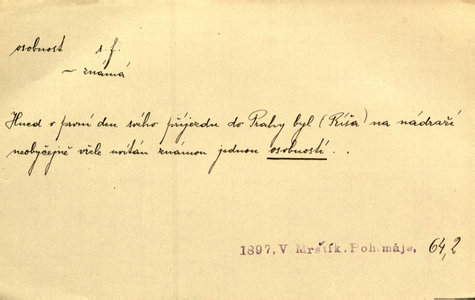 osobnost s.f.
~ známá
Hned v první den svého příjezdu do Prahy byl (Ríša) na nádraží
neobyčejně vřele uvítán známou jednou osobností . .
1897, V. Mrštík. Poh. máje, 64,2